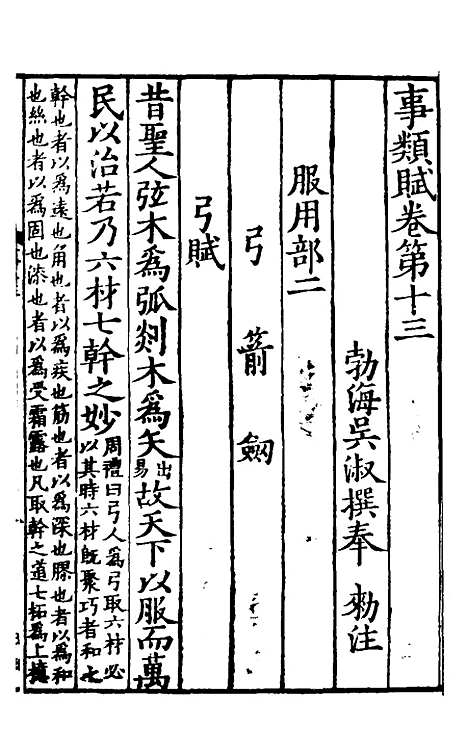 事類賦卷第十三
勃海吳淑撰奉 勑注
服用部二
弓 箭 劒
弓賦
昔聖人弦木爲弧剡木爲矢出易故天下以服而萬
民以治若乃六材七幹之妙周禮曰弓人爲弓取六材必以其時六材既聚巧者和之
幹也者以爲遠也角也者以爲疾也筋也者以爲深也膠也者以爲和
也絲也者以爲固也漆也者以爲受霜露也凡取幹之道七柘爲上檍